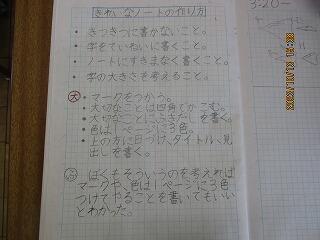 きれいなノートの作り方
・きつきつに書かないこと。
・字をていねいに書くこと。
・ノートにすきまなく書くこと。
・字の大きさを考えること。
大
・マークをつかう。
・大切なことは四角でかこむ。
・大切なことにふきだしを書く。
・色は1ページに3色。
・上の方に日づけ、タイトル、見
出しを書く。
ぼくもそういうのを考えれば
マークや、色は1ページに3色
つけてやることを書いてもいい
とわかった。
3:20